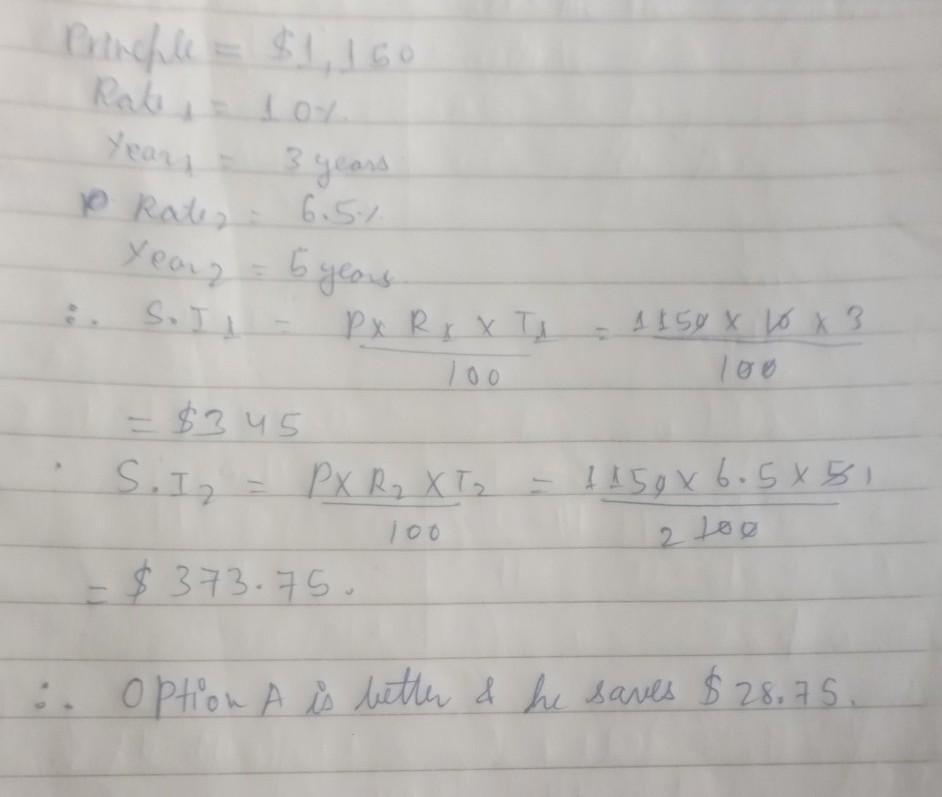 Principle = $1,150
Rate₁ = 10%
Year₁ = 3 years
Rate₂ = 6.5%
Year₂ = 5 years
∴ S.I₁ = P x R₁ x T₁ / 100 = 1150 x 10 x 3 / 100
= $345
S.I₂ = P x R₂ x T₂ / 100 = 1150 x 6.5 x 5 1 / 2 100
= $373.75.
∴ Option A is better & he saves $28.75.